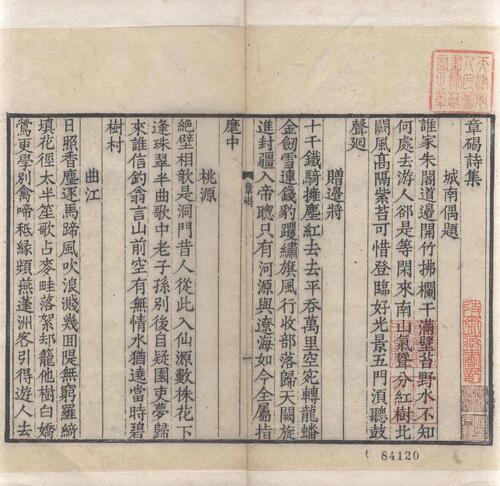 章碣詩集
城南偶題
誰家朱閣道邊開竹拂欄干滿壁苔野水不知
何處去游人郤是等閑來南山氣聳分紅樹北
闕風高隔紫苔可惜登臨好光景五門須聽鼓
聲廻
贈邊將
十千鐵騎擁塵紅去去平吞萬里空宛轉龍蟠
金劒雪連錢豹躩繡旗風行收部落歸天闕旋
進封疆入帝聰只有河源與遼海如今全屬指
麾中
章碣
一
桃源
絶壁相欹是洞門昔人從此入仙源數株花下
逢珠翠半曲歌中老子孫別後自疑園吏夢歸
來誰信釣翁言山前空有無情水猶遶當時碧
樹村
曲江
日照香塵逐馬蹄風吹浪濺幾囬隄無窮羅綺
填花徑太半笙歌占麥畦落絮却籠他樹白嬌
鶯更學別禽啼秪縁頻燕蓬洲客引得遊人去
84120